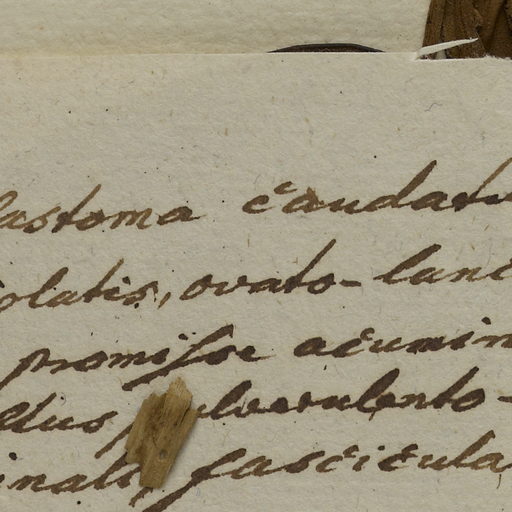 lastoma caudatu
iolatis, ovato-lance
promisse acumin
dus pulverulento-
inalo, fascicula